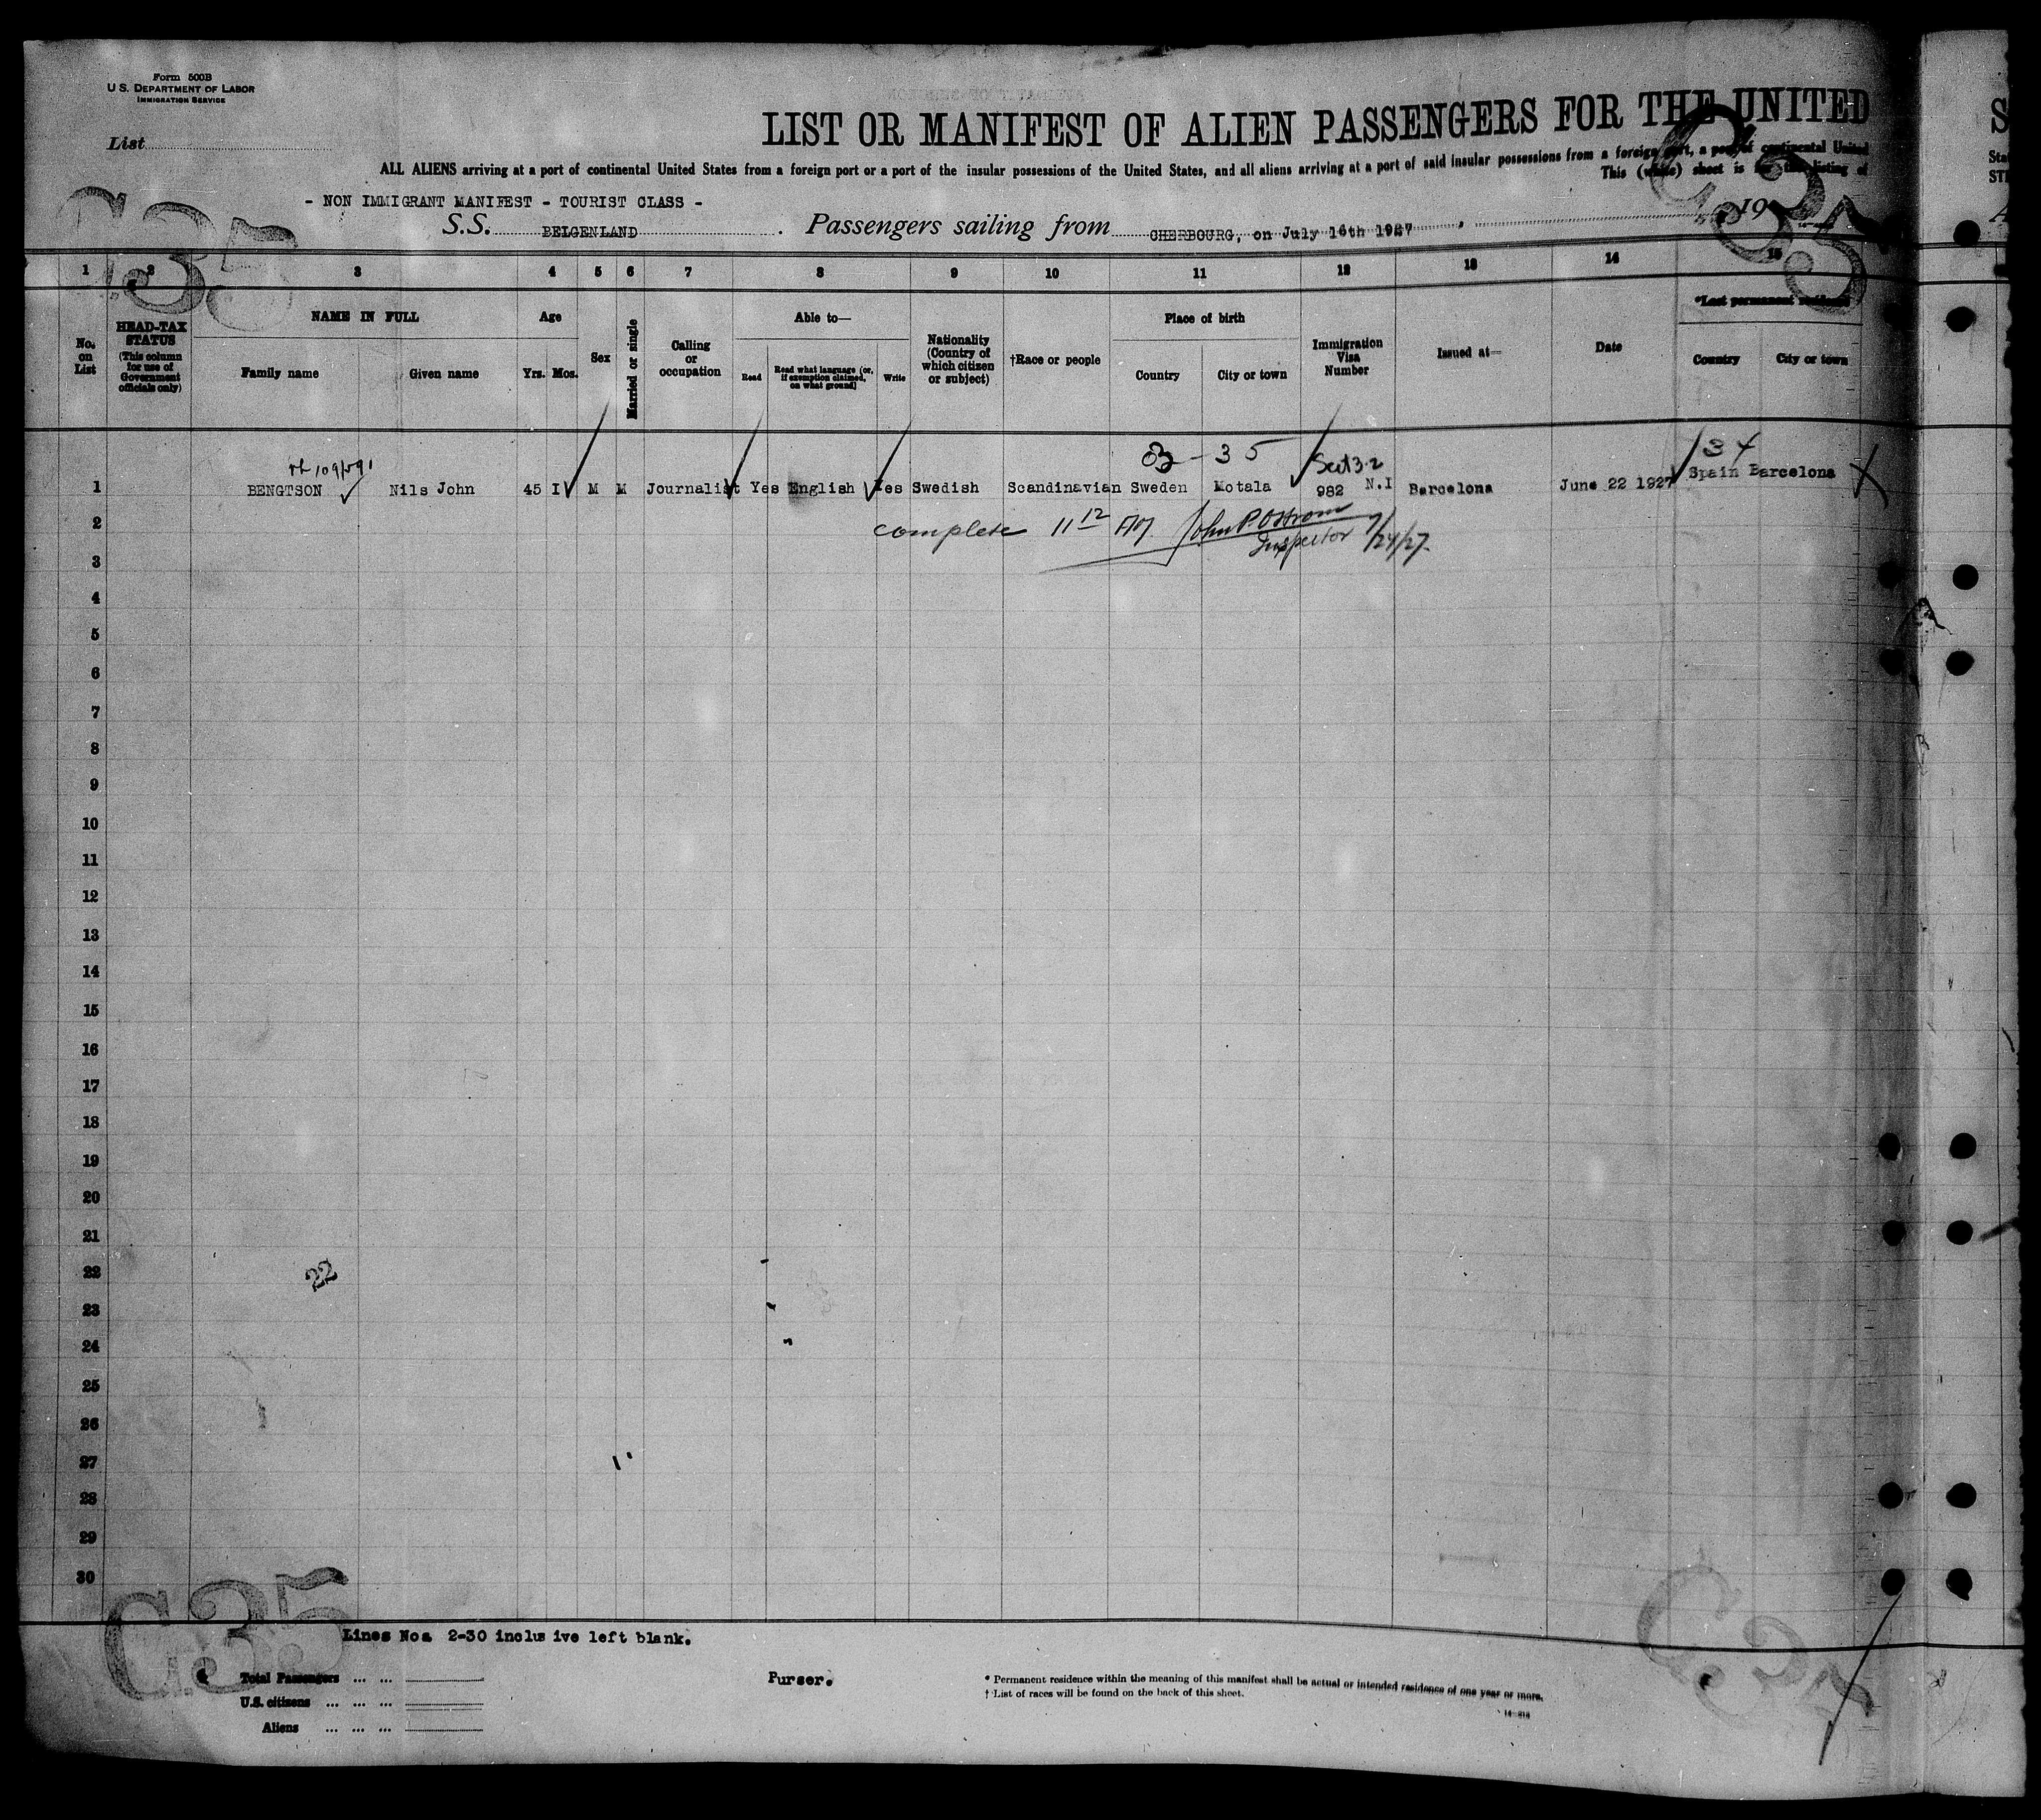 Form 500B
U.S. DEPARTMENT OF LABOR
IMMIGRATION SERVICE
List
LIST OR MANIFEST OF ALIEN PASSENGERS FOR THE UNITED
ALL ALIENS arriving at a port of continental United States from a foreign port or a port of the insular possessions of the United States, and all aliens arriving at a port of said insular possessions from a foreign port, a port of continental United
This (white) sheet is for the listing of
- NON IMMIGRANT MANIFEST - TOURIST CLASS -
S.S. BELGENLAND . Passengers sailing from CHERBOURG, on July 16th 1927 , 19
C35
C35
1 2 3 4 5 6 7 8 9 10 11 12 13 14 15
No. on List
HEAD-TAX STATUS
(This column for use of Government officials only)
NAME IN FULL
Family name Given name
Age
Yrs. Mos.
Sex
Married or single
Calling or occupation
Able to—
Read
Read what language (or, if exemption claimed, on what ground)
Write
Nationality (Country of which citizen or subject)
†Race or people
Place of birth
Country City or town
Immigration Visa Number
Issued at—
Date
*Last permanent residence
Country City or town
3 - 35 Sect 3-2 34
1 BENGTSON Nils John 45 I M M Journalist Yes English Yes Swedish Scandinavian Sweden Motala 982 N.I Barcelona June 22 1927 Spain Barcelona X
2 complete 11 12 AM John P. Ostrom
Inspector 7/24/27.
3
4
5
6
7
8
9
10
11
12
13
14
15
16
17
18
19
20
21
22 22
23
24
25
26
27
28
29
30
C35
C35
Lines Nos 2-30 inclus ive left blank.
Total Passengers ... ...
U.S. citizens ... ... ...
Aliens ... ... ...
Purser.
* Permanent residence within the meaning of this manifest shall be actual or intended residence of one year or more.
† List of races will be found on the back of this sheet.